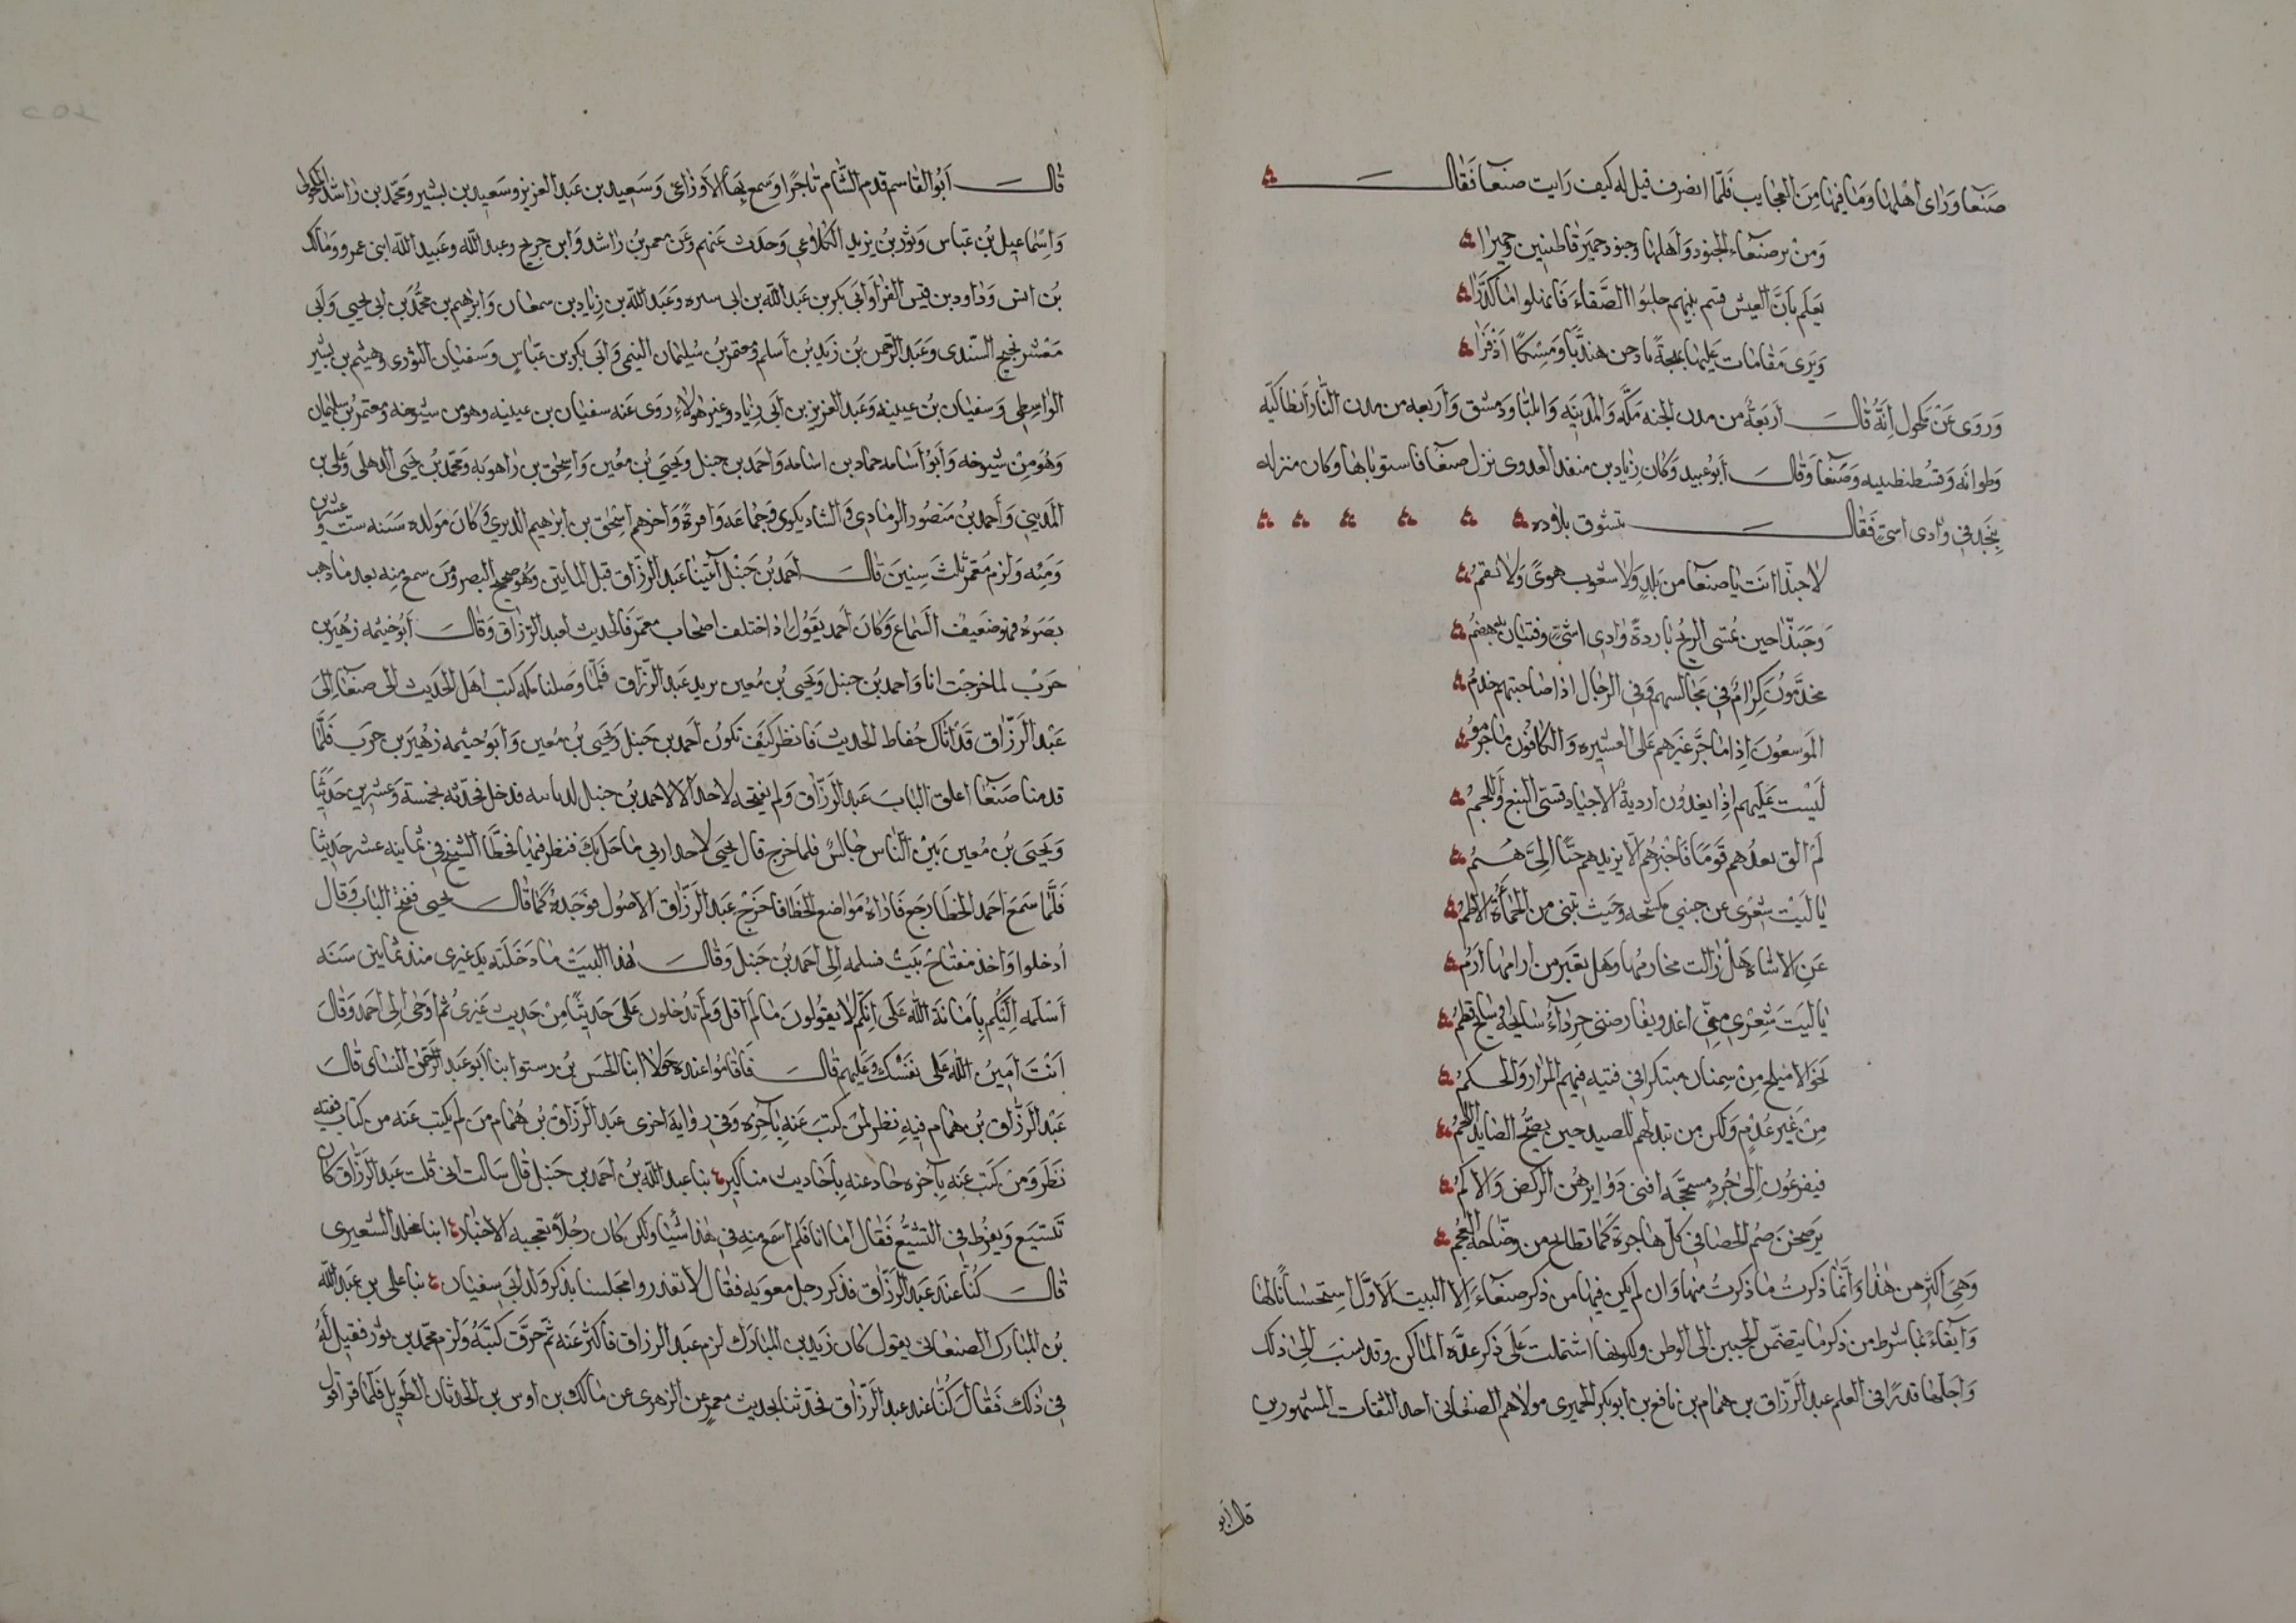 صنعا وراى اهلها وما فيها من العجايب فلما انصرف قيل له كيف رايت صنعا فقال
ومن ير صنعاء الجنود واهلها وجنود حمير قاطنين وحميرا
يعلم بان العيش قسم بينهم حلبوا الصفاء فانهلوا ما كدرا
ويرى مقامات عليها بهجة يارجن هنديا ومسكا اذفرا
وروى عن مكحول انه قال اربعة من مدن الجنه مكه والمدينه وايليا ودمشق واربعه من مدن النار انطاكيه
وطوانه وقسطنطينيه وصنعا وقال ابو عبيد وكان زياد بن منقذ العدوى نزل صنعا فاستوباها وكان منزله
بنجد في وادى اشي فقال يتشوق بلاده
لا حبذا انت يا صنعا من بلد ولا شعوب هوى ولا نقم
وحبذا حين تمسى الريح باردة وادى اشي وفتيان به هضم
مخدمون كرام في مجالسهم وفي الرحال اذا صاحبتهم خدم
الموسعون اذا ما جر غيرهم على العشيره والكافون ما جرموا
ليست عليهم اذا يغدون اردية الا جياد قسي النبع واللجم
لم الق بعدهم قوما فاخبرهم الا يزيدهم حبا الي هم
يا ليت شعرى عن جنبي مكشحه وحيث تبنى من الحناءة الاطم
عن الاشاه هل زالت مخارمها وهل تغير من ارامها ارم
يا ليت شعرى متى اغدو يعارضني جرداء سابحة او سابح قدم
نحو الاميلح من سمنان مبتكرا في فتيه فيهم المرار والحكم
من غير عدم ولكن من تبذلهم للصيد حين يصيح الصايد اللحم
فيفزعون الى جرد مسحجه افنى دوابرهن الركض والاكم
يرضخن صم الحصا في كل هاجرة كما تطايح من مرضاحه العجم
وهي اكثر من هذا وانما ذكرت ما ذكرت منها وان لم يكن فيها من ذكر صنعاء الا البيت الاول استحسانا لها
وايفاء بما شرط من ذكر ما يتضمن الحنين الى الوطن ولكونها اشتملت على ذكر عدة اماكن وقد نسب الى ذلك
واجلها قدرا في العلم عبد الرزاق بن همام بن نافع بن ابو بكر الحميرى مولاهم الصنعانى احد الثقات المشهورين
قال ابو
قال ابو القاسم قدم الشام تاجرا وسمع بها الاوزاعي وسعيد بن عبد العزيز وسعيد بن بشير ومحمد بن راشد المكحولى
واسماعيل بن عياش وثور بن يزيد الكلاوعى وحدث عنهم وعن معمر بن راشد وابن جريج وعبد الله وعبيد الله ابنى عمرو ومالك
بن انس وداود بن قيس الفرا وابى بكر بن عبد الله بن ابى سبره وعبد الله بن زياد بن سمعان وابرهيم بن محمد بن ابى يحيى وابى
معشر نجيح السندى وعبد الرحمن بن زيد بن اسلم ومعتمر بن سليمان التيمى وابى بكر بن عياس وسفيان الثورى وهشيم بن بشير
الواسطى وسفيان بن عيينه وعبد العزيز بن ابى زياد وغير هولاء روى عنه سفيان بن عيينه وهو من شيوخه ومعتمر بن سليمان
وهو من شيوخه وابو اسامه حماد بن اسامه واحمد بن حنبل ويحيى بن معين واسحق بن راهويه ومحمد بن يحيى الذهلى وعلى بن
المديني واحمد بن منصور الرمادي والشاديكوى وجماعه وافرة واخرهم اسحق بن ابرهيم الدبري وكان مولده سنه ست وعشرين
وميه ولزم معمر ثلث سنين قال احمد بن حنبل اتينا عبد الرزاق قبل المايتين وهو صحيح البصر ومن سمع منه بعد ما ذهب
بصره فهو ضعيف السماع وكان احمد يقول اذا اختلف اصحاب معمر فالحديث لعبد الرزاق وقال ابو خيثمه زهير بن
حرب لما خرجت انا واحمد بن حنبل ويحيى بن معين نريد عبد الرزاق فلما وصلنا مكه كتب اهل الحديث الى صنعاء الى
عبد الرزاق قد اتاك حفاظ الحديث فانظر كيف تكون احمد بن حنبل ويحيى بن معين وابو خيثمه زهير بن حرب فلما
قدمنا صنعا اغلق الباب عبد الرزاق ولم يفتحه لاحد الا لاحمد بن حنبل لديانته فدخل فحدثه بخمسة وعشرين حديثا
ويحيى بن معين بين الناس جالس فلما خرج قال يحيى لاحمد ارنى ما حل بك فنظر فيها فخطا الشيخ في ثمانيه عشر حديثا
فلما سمع احمد الخطا رجع فاراه مواضع الخطا فاخرج عبد الرزاق الاصول فوجده كما قال يحيى ففتح الباب وقال
ادخلوا واخذ مفتاح بيت فسلمه الى احمد بن حنبل وقال هذا البيت ما دخلته يد غيرى منذ ثمانين سنه
اسلمه اليكم بامانة الله على انكم لا يقولون ما لم اقل ولم تدخلون على حديثا من حديث غيرى ثم اوحى الى احمد وقال
انت امين الله على نفسك وعليهم قال فاقاموا عنده حولا ابنا الحسن بن رستوا بنا ابو عبد الرحمن النساى قال
عبد الرزاق بن همام فيه نظر لمن كتب عنه باخره وفي روايه اخرى عبد الرزاق بن همام من لم يكتب عنه من كتاب ففيه
نظر ومن كتب عنه باخره حاد عنه باحاديث مناكير بنا عبد الله بن احمد بن حنبل قال سالت ابى قلت عبد الرزاق كان
تتشيع ويفرط في التشيع فقال اما انا فلم اسمع منه في هذا شيئا ولكن كان رجلا تعجبه الاخبار ابنا مخلد الشعيرى
قال كنا عند عبد الرزاق فذكر رجل معويه فقال لا تقذروا مجلسنا بذكر ولد ابى سفيان بنا على بن عبد الله
بن المبارك الصنعانى يقول كان زيد بن المبارك لزم عبد الرزاق فاكثر عنه ثم حرق كتبه ولزم محمد بن ثور فقيل له
في ذلك فقال كنا عند عبد الرزاق فحدثنا بحديث معمر عن الزهرى عن مالك بن اوس بن الحدثان الطويل فلما قرا قول